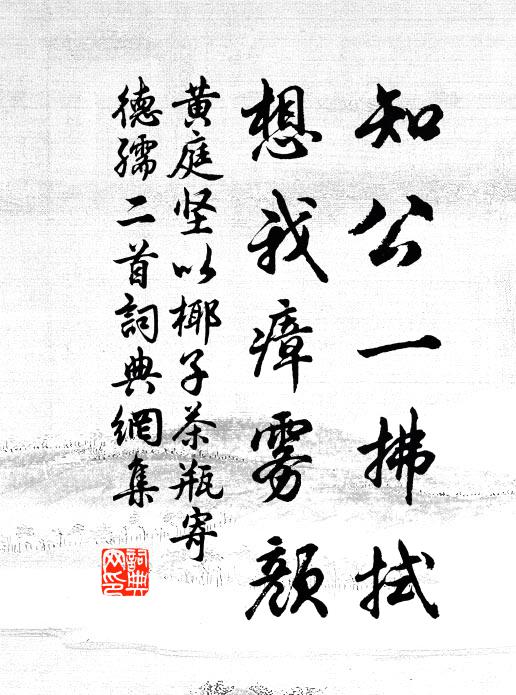 知公一拂拭
想我瘴雾颜
黄庭坚以椰子茶瓶寄
德孺二首詞典網集
詞典
网印